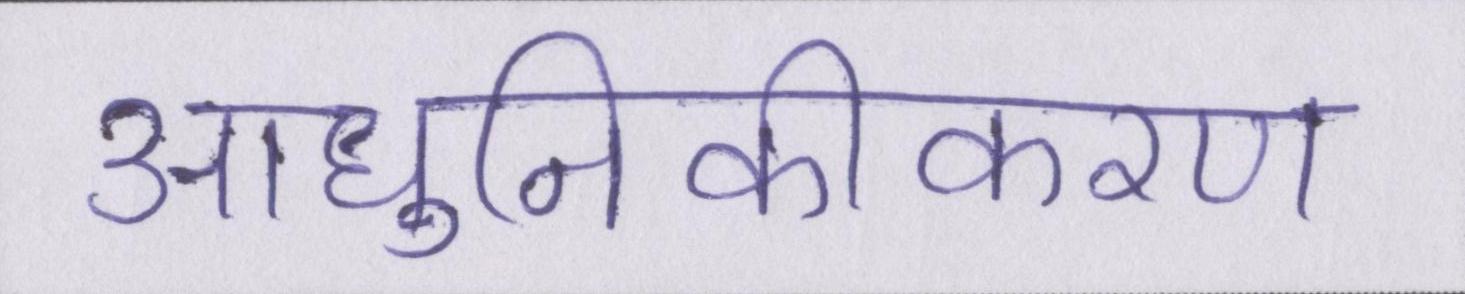 आधुनिकीकरण